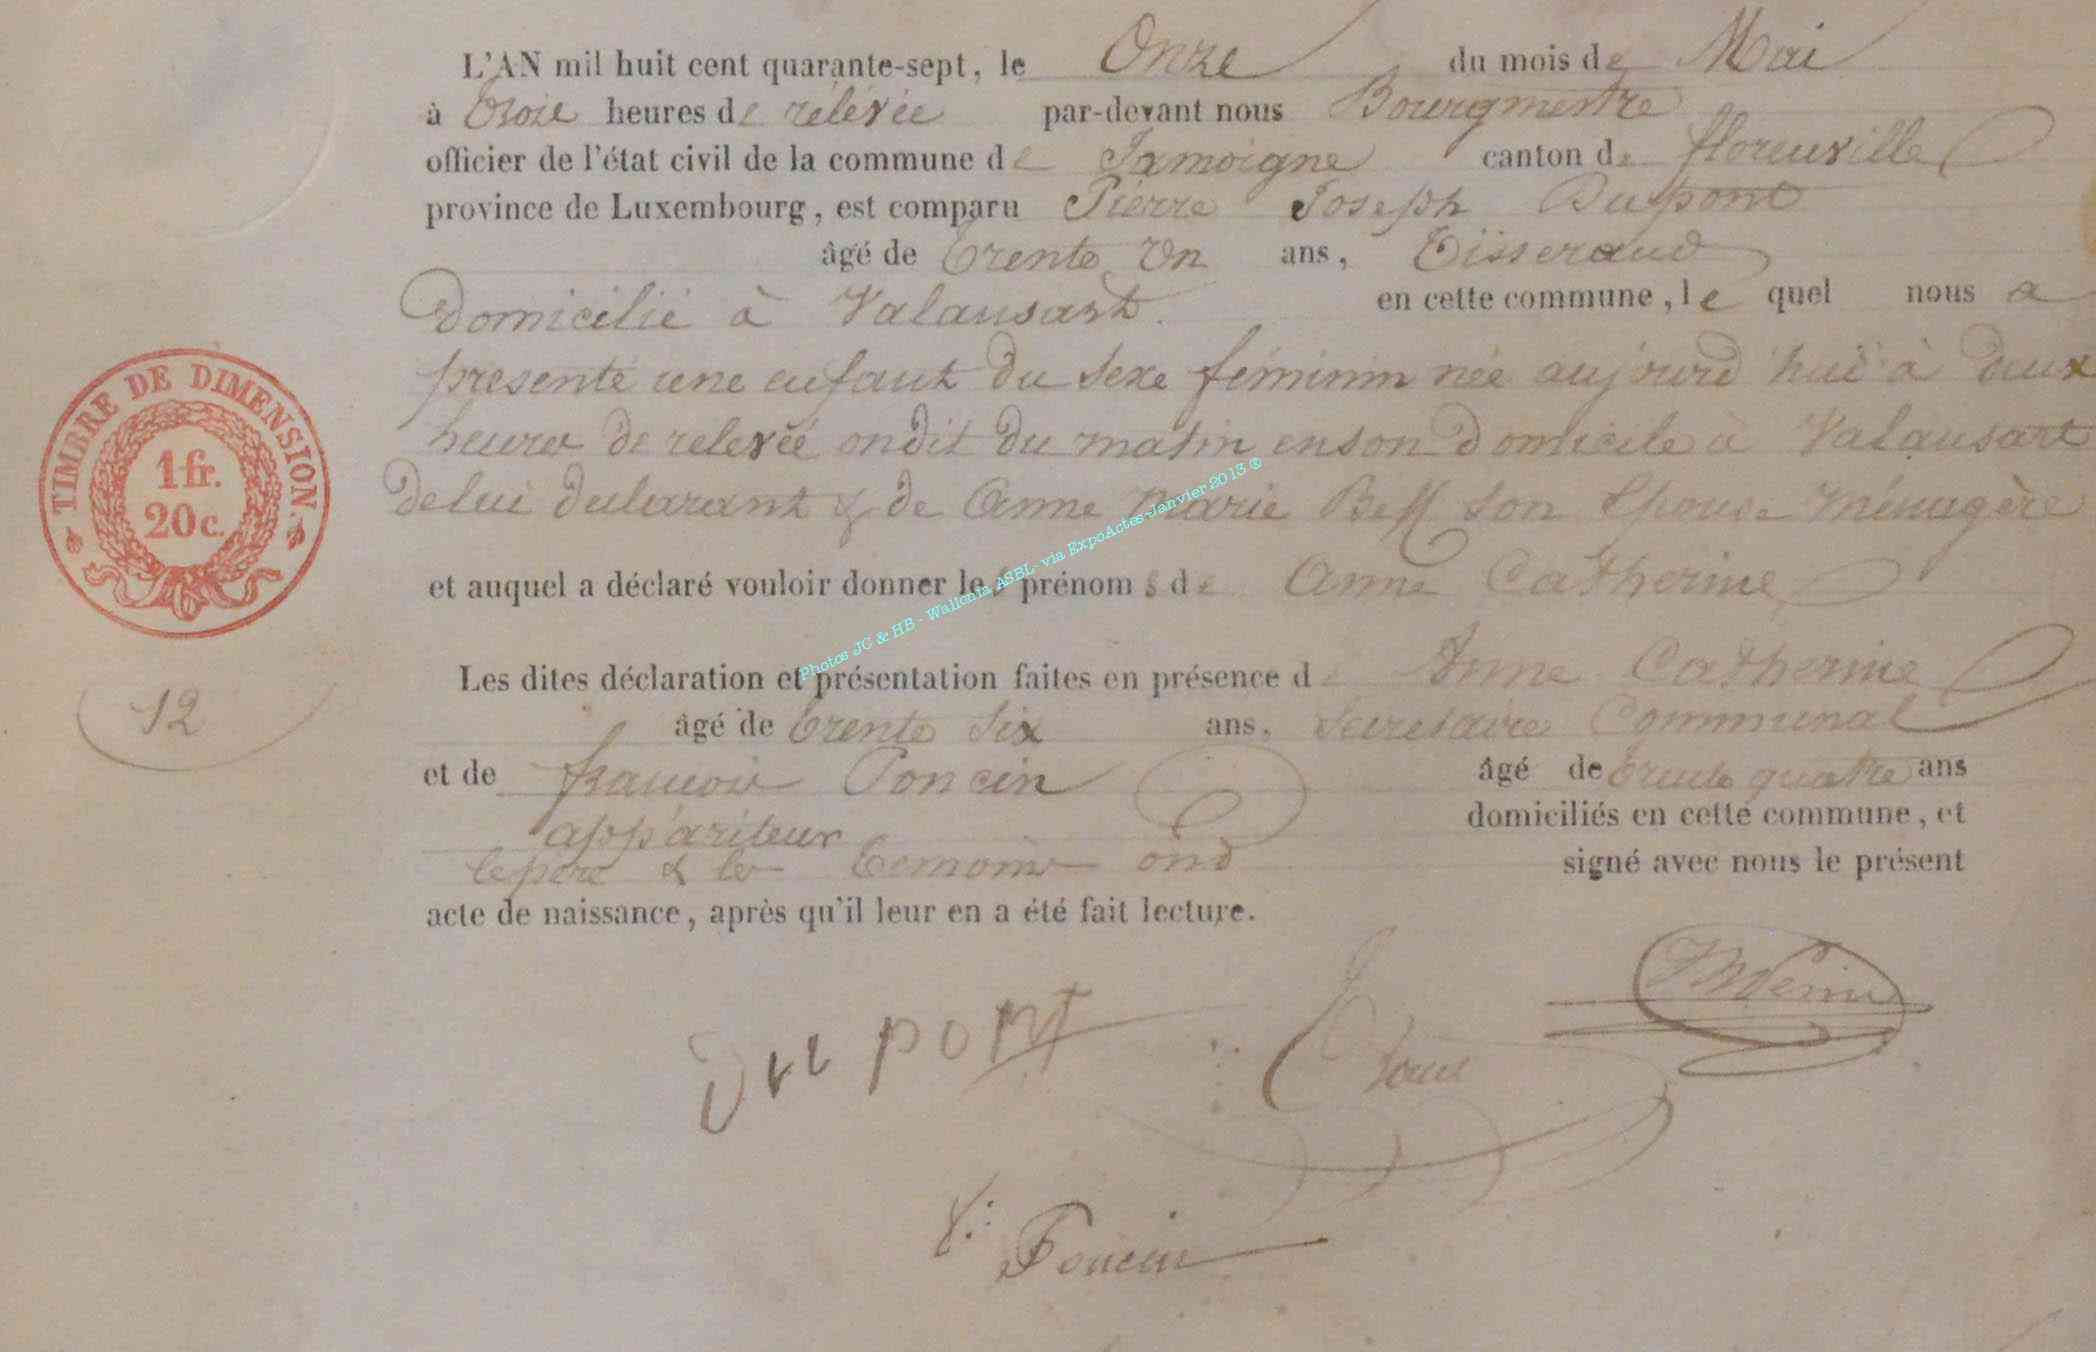 L'AN mil huit cent quarante-sept, le Onze du mois de Mai
à trois heures de rélévée par-devant nous Bourgmestre
officier de l'état civil de la commune de Jamoigne canton de florenville
province de Luxembourg, est comparu Pierre Joseph Dupont
âgé de trente un ans, Tisserand
Domicilié à Valansart. en cette commune, le quel nous a
présenté une enfant du sexe féminin née aujourd'hui à deux
heures de relevéé ondit du matin en son domicile à Valansart
de lui déclarant & de Anne Marie son épouse ménagère
et auquel a déclaré vouloir donner les prénoms de Anne Catherine
Les dites déclaration et présentation faites en présence de Anne Catherine
âgé de trente six ans, secretaire Communal
et de françois Poncin âgé de trente quatre ans
appariteur domiciliés en cette commune, et
le père & les temoins ond signé avec nous le présent
acte de naissance, après qu'il leur en a été fait lecture.
TIMBRE DE DIMENSION.
1 fr.
20 c.
12
Photos JC & HB - Wallonia, ASBL - via ExpoActes-Janvier 2013 ®
Dupont
Poncin